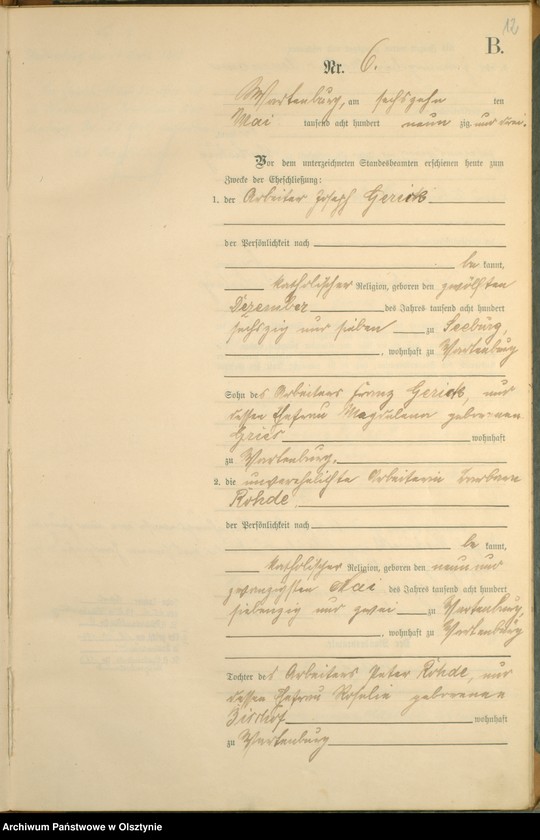 12
B.
Nr. 6.
Wartenburg, am sechszehn ten
Mai tausend acht hundert neun zig und drei.
Vor dem unterzeichneten Standesbeamten erschienen heute zum
Zwecke der Eheschließung:
1. der Arbeiter Joseph Gerick
der Persönlichkeit nach
be kannt,
katholischer Religion, geboren den zwölften
Dezember des Jahres tausend acht hundert
sechszig und sieben zu Seeburg,
, wohnhaft zu Wartenburg
Sohn des Arbeiters Franz Gerick, und
dessen Ehefrau Magdalena geborenen
Gries wohnhaft
zu Wartenburg.
2. die unverehelichte Arbeiterin Barbara
Rohde,
der Persönlichkeit nach
be kannt,
katholischer Religion, geboren den neun und
zwanzigsten Mai des Jahres tausend acht hundert
siebenzig und zwei zu Wartenburg,
, wohnhaft zu Wartenburg
Tochter des Arbeiters Peter Rohde, und
dessen Ehefrau Rosalie geborenen
wohnhaft
zu Wartenburg
Archiwum Państwowe w Olsztynie